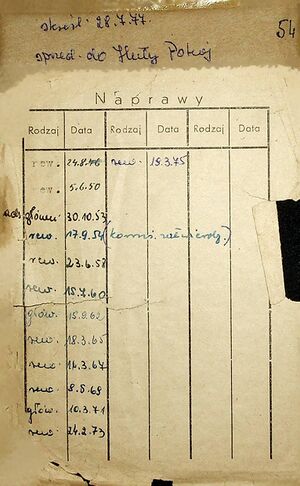 skreśl. 28.7.77.
54
sprzed. do Huty Pokój
Naprawy
Rodzaj Data Rodzaj Data Rodzaj Data
rew. 24.8.46 rew. 19.3.75
rew. 5.6.50
główn. 30.10.53
rew. 17.9.54 (komis.
rew. 23.6.58
rew. 15.7.60
głów. 15.9.62
rew. 18.3.65
rew. 14.3.67
rew. 8.5.69
głów. 10.3.71
rew. 24.2.73